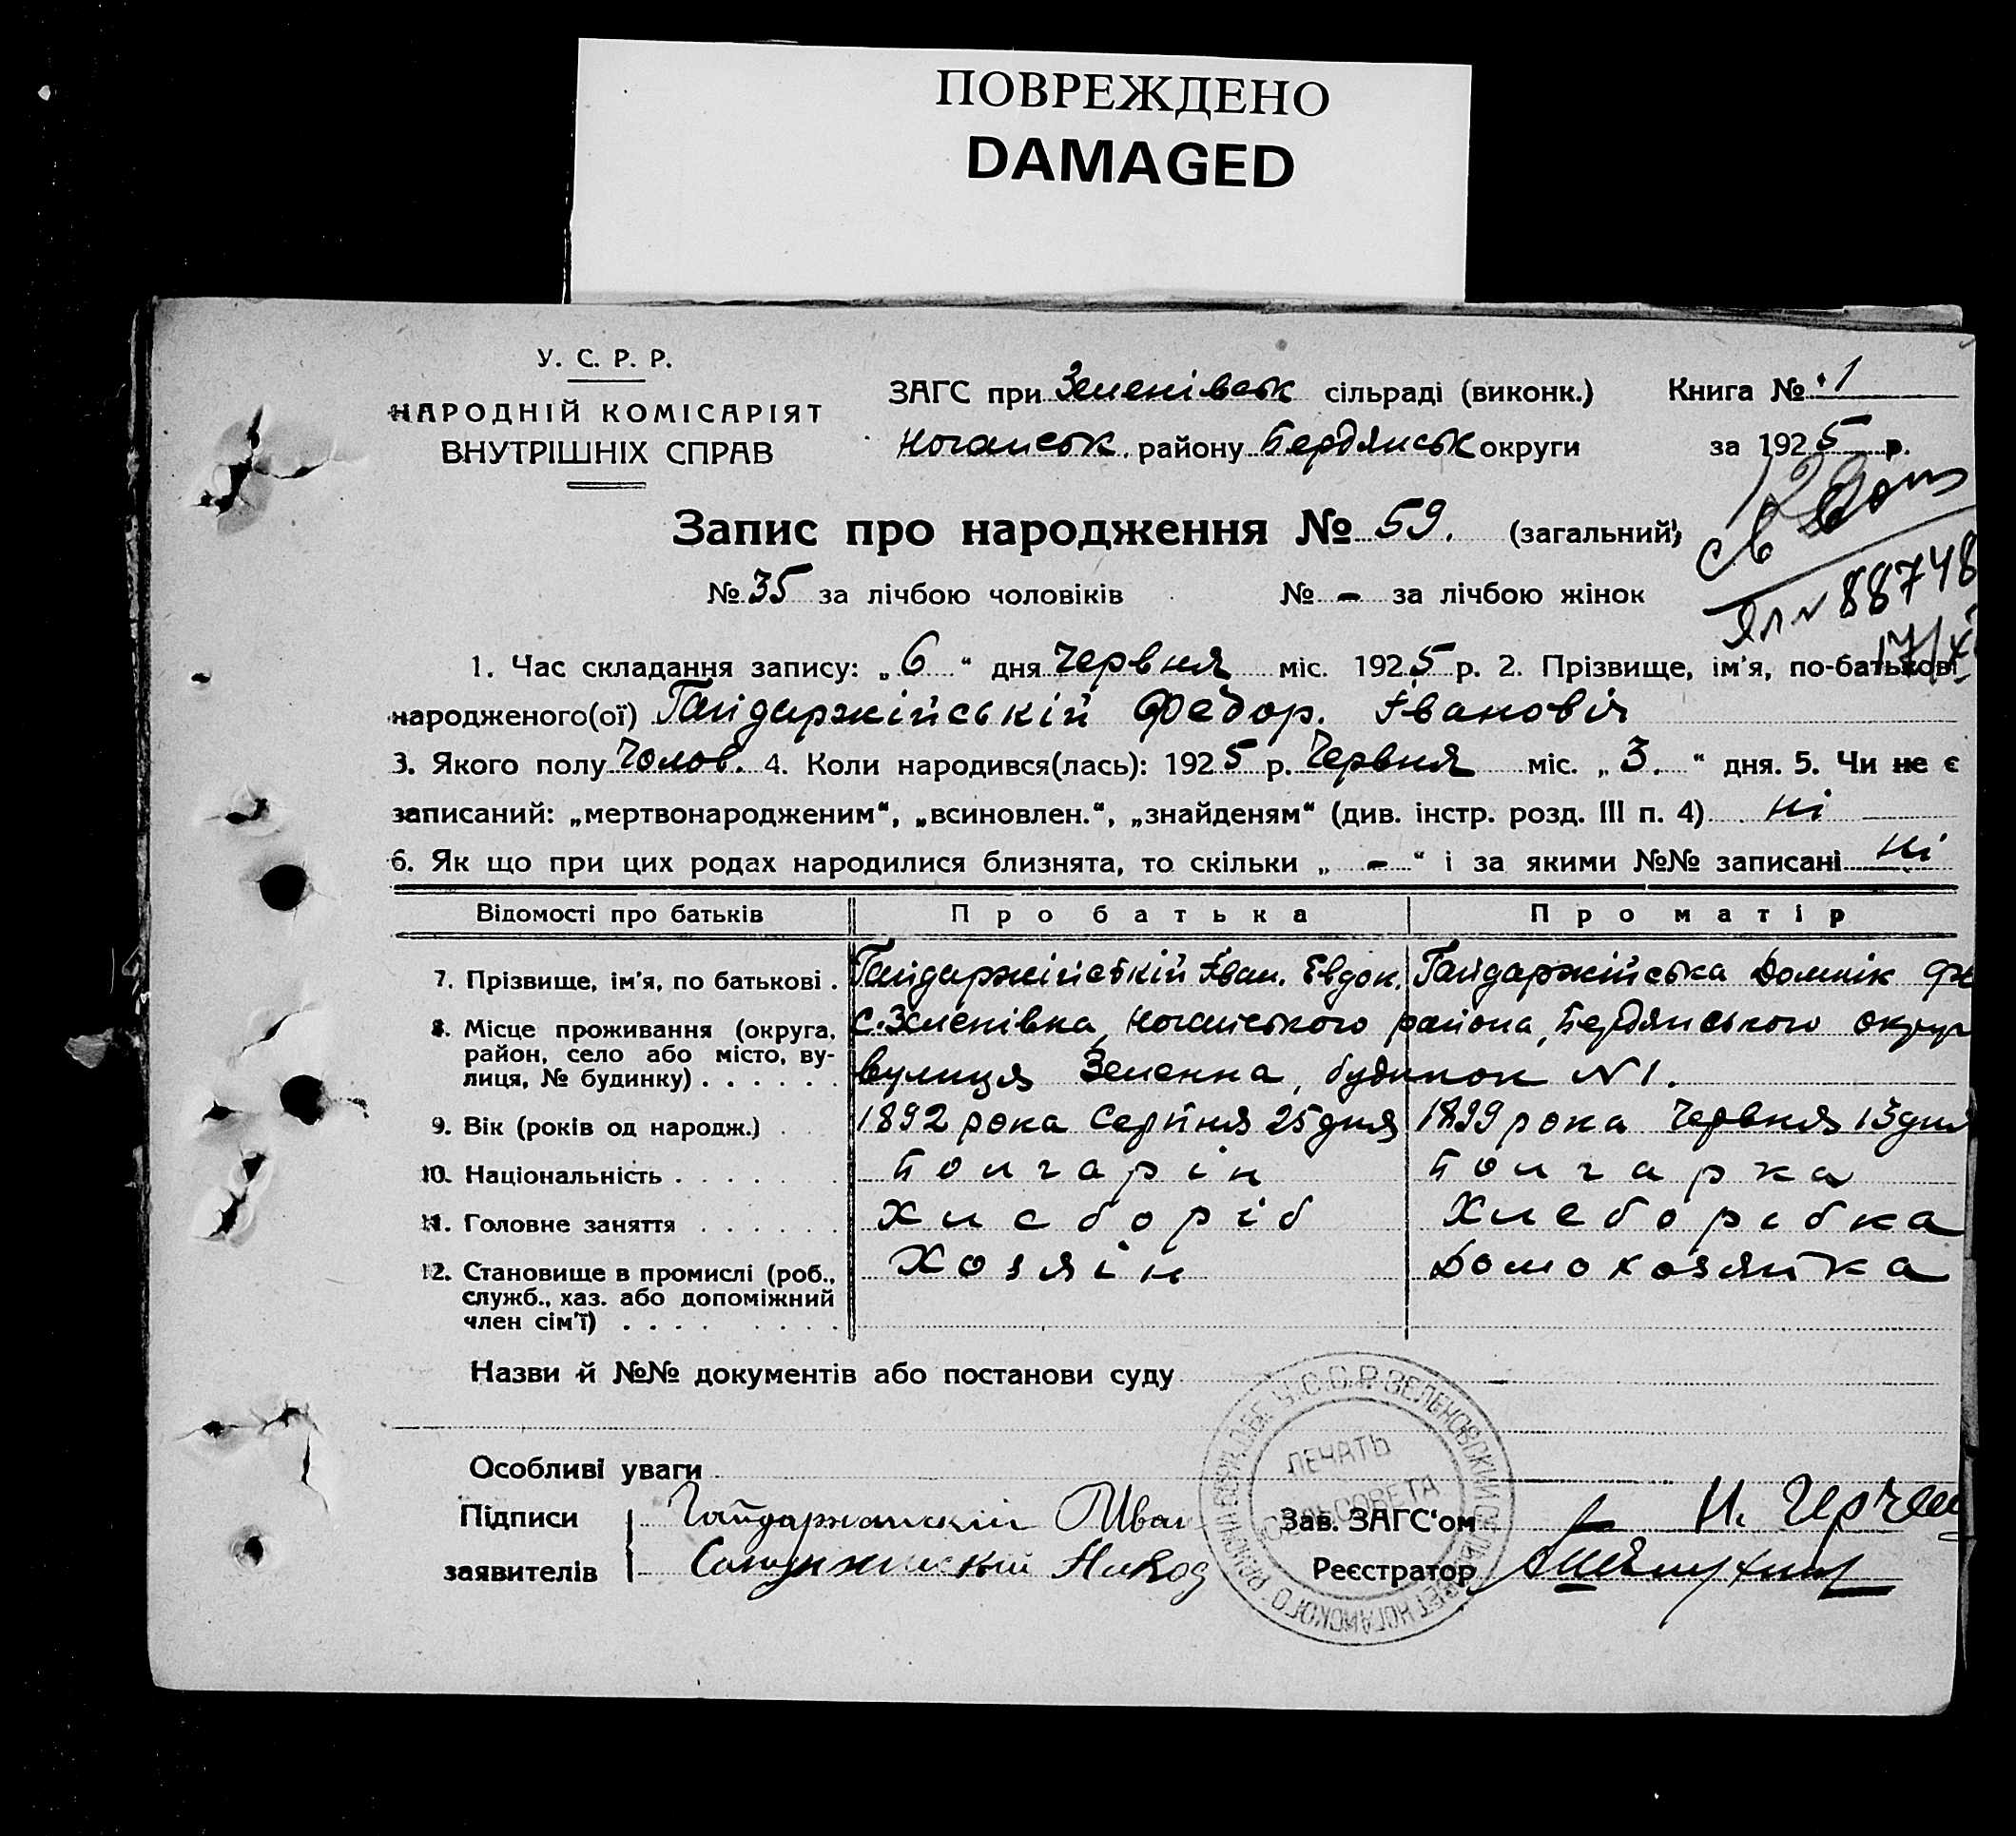 ПОВРЕЖДЕНО
DAMAGED
У. С. Р. Р.
НАРОДНІЙ КОМІСАРІЯТ
ВНУТРІШНІХ СПРАВ
ЗАГС при Зеленівськ сільраді (виконк.) Книга № 1
Ногайськ. району Бердянськ округи за 1925 р.
Запис про народження № 59. (загальний)
№ 35 за лічбою чоловіків № - за лічбою жінок
88748
1. Час складання запису: „6“ дня Червня міс. 1925 р. 2. Прізвище, ім'я, по-батькові
народженого(ої) Гайдаржійській Федор. Івановіч
3. Якого полу Чолов. 4. Коли народився(лась): 1925 р. Червня міс. „3.“ дня. 5. Чи не є
записаний: „мертвонародженим“, „всиновлен.“, „знайденям“ (див. інстр. розд. III п. 4) ні
6. Як що при цих родах народилися близнята, то скільки „-“ і за якими №№ записані ні
Відомості про батьків Про батька Про матір
7. Прізвище, ім'я, по батькові . Гайдаржійській Іван. Евдок. Гайдаржійська Домнік
8. Місце проживання (округа, район, село або місто, вулиця, № будинку) . . . . . . с. Зеленівка, Ногайського района, Бердянського округ
вулиця Зеленна, будинок №1.
9. Вік (років од народж.) . 1892 рока Серпня 25 дня 1899 рока Червня 13 дня
10. Національність . . . . . . Болгарін Болгарка
11. Головне заняття . . . . . . Хлебориб Хлеборобка
12. Становище в промислі (роб., служб., хаз. або допоміжний член сім'ї) . . . . Хозяін Домохозяйка
Назви й №№ документів або постанови суду
Особливі уваги
Підписи Гайдаржийский Иван Зав. ЗАГС'ом Н.
заявителів Реєстратор
У.С.С.Р. ЗЕЛЕНОВСКИЙ СЕЛЬСОВЕТ НОГАЙСКОГО
ПЕЧАТЬ
СЕЛЬСОВЕТА